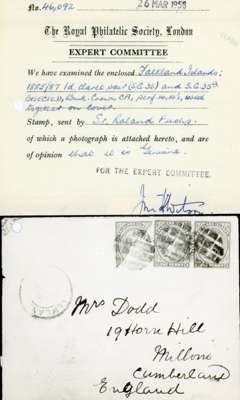 No. 46,092
26 MAR 1958
The Royal Philatelic Society, London
EXPERT COMMITTEE
We have examined the enclosed Falkland Islands:
1d. claret pair (S.G.
Crown CA, used
on cover
Stamp, sent by Sr. Roland
of which a photograph is attached hereto, and are
of opinion that it is Genuine.
FOR THE EXPERT COMMITTEE.
Mrs Dodd
19 Horn Hill
Millom
Cumberland
England